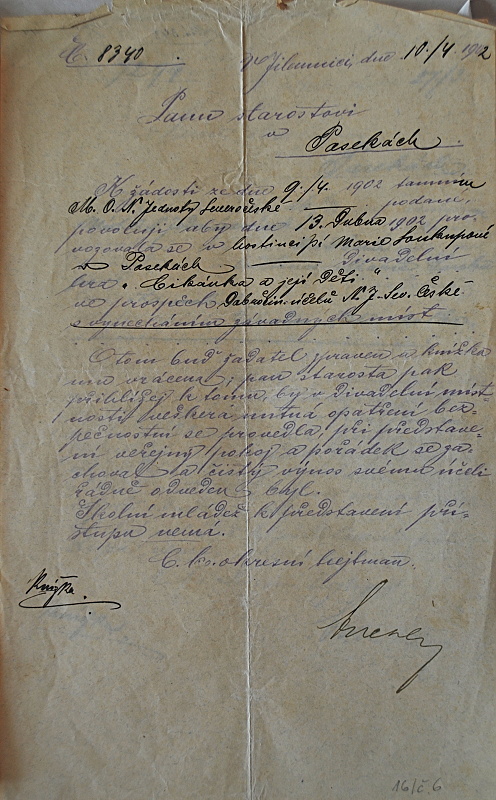 Č. 8340
V Jilemnici, dne 10./4 1902
Panu starostovi
v
Pasekách.
K žádosti ze dne 9./4. 1902 tamním
M. O. N. Jednoty Severočeské podané,
povoluji aby dne 13. Dubna 1902 pro-
vozovala se v hostinci pí Marie Soukupové
v Pasekách divadelní
hra „Cikánka a její Děti."
ve prospěch Dobročin. účelů N. J. Sev. České
s vynecháním závadných míst.
O tom buď žadatel zpraven a knížka
mu vrácena; pan starosta pak
přihlížej k tomu, by v divadelní míst-
nosti veškera nutná opatření bez-
pečnostní se provedla, při představe-
ní veřejný pokoj a pořádek se za-
choval a čistý výnos svému účeli
řádně odveden byl.
Školní mládež k představení pří-
stupu nemá.
C. k. okresní hejtman.
Knížka.
16/č 6